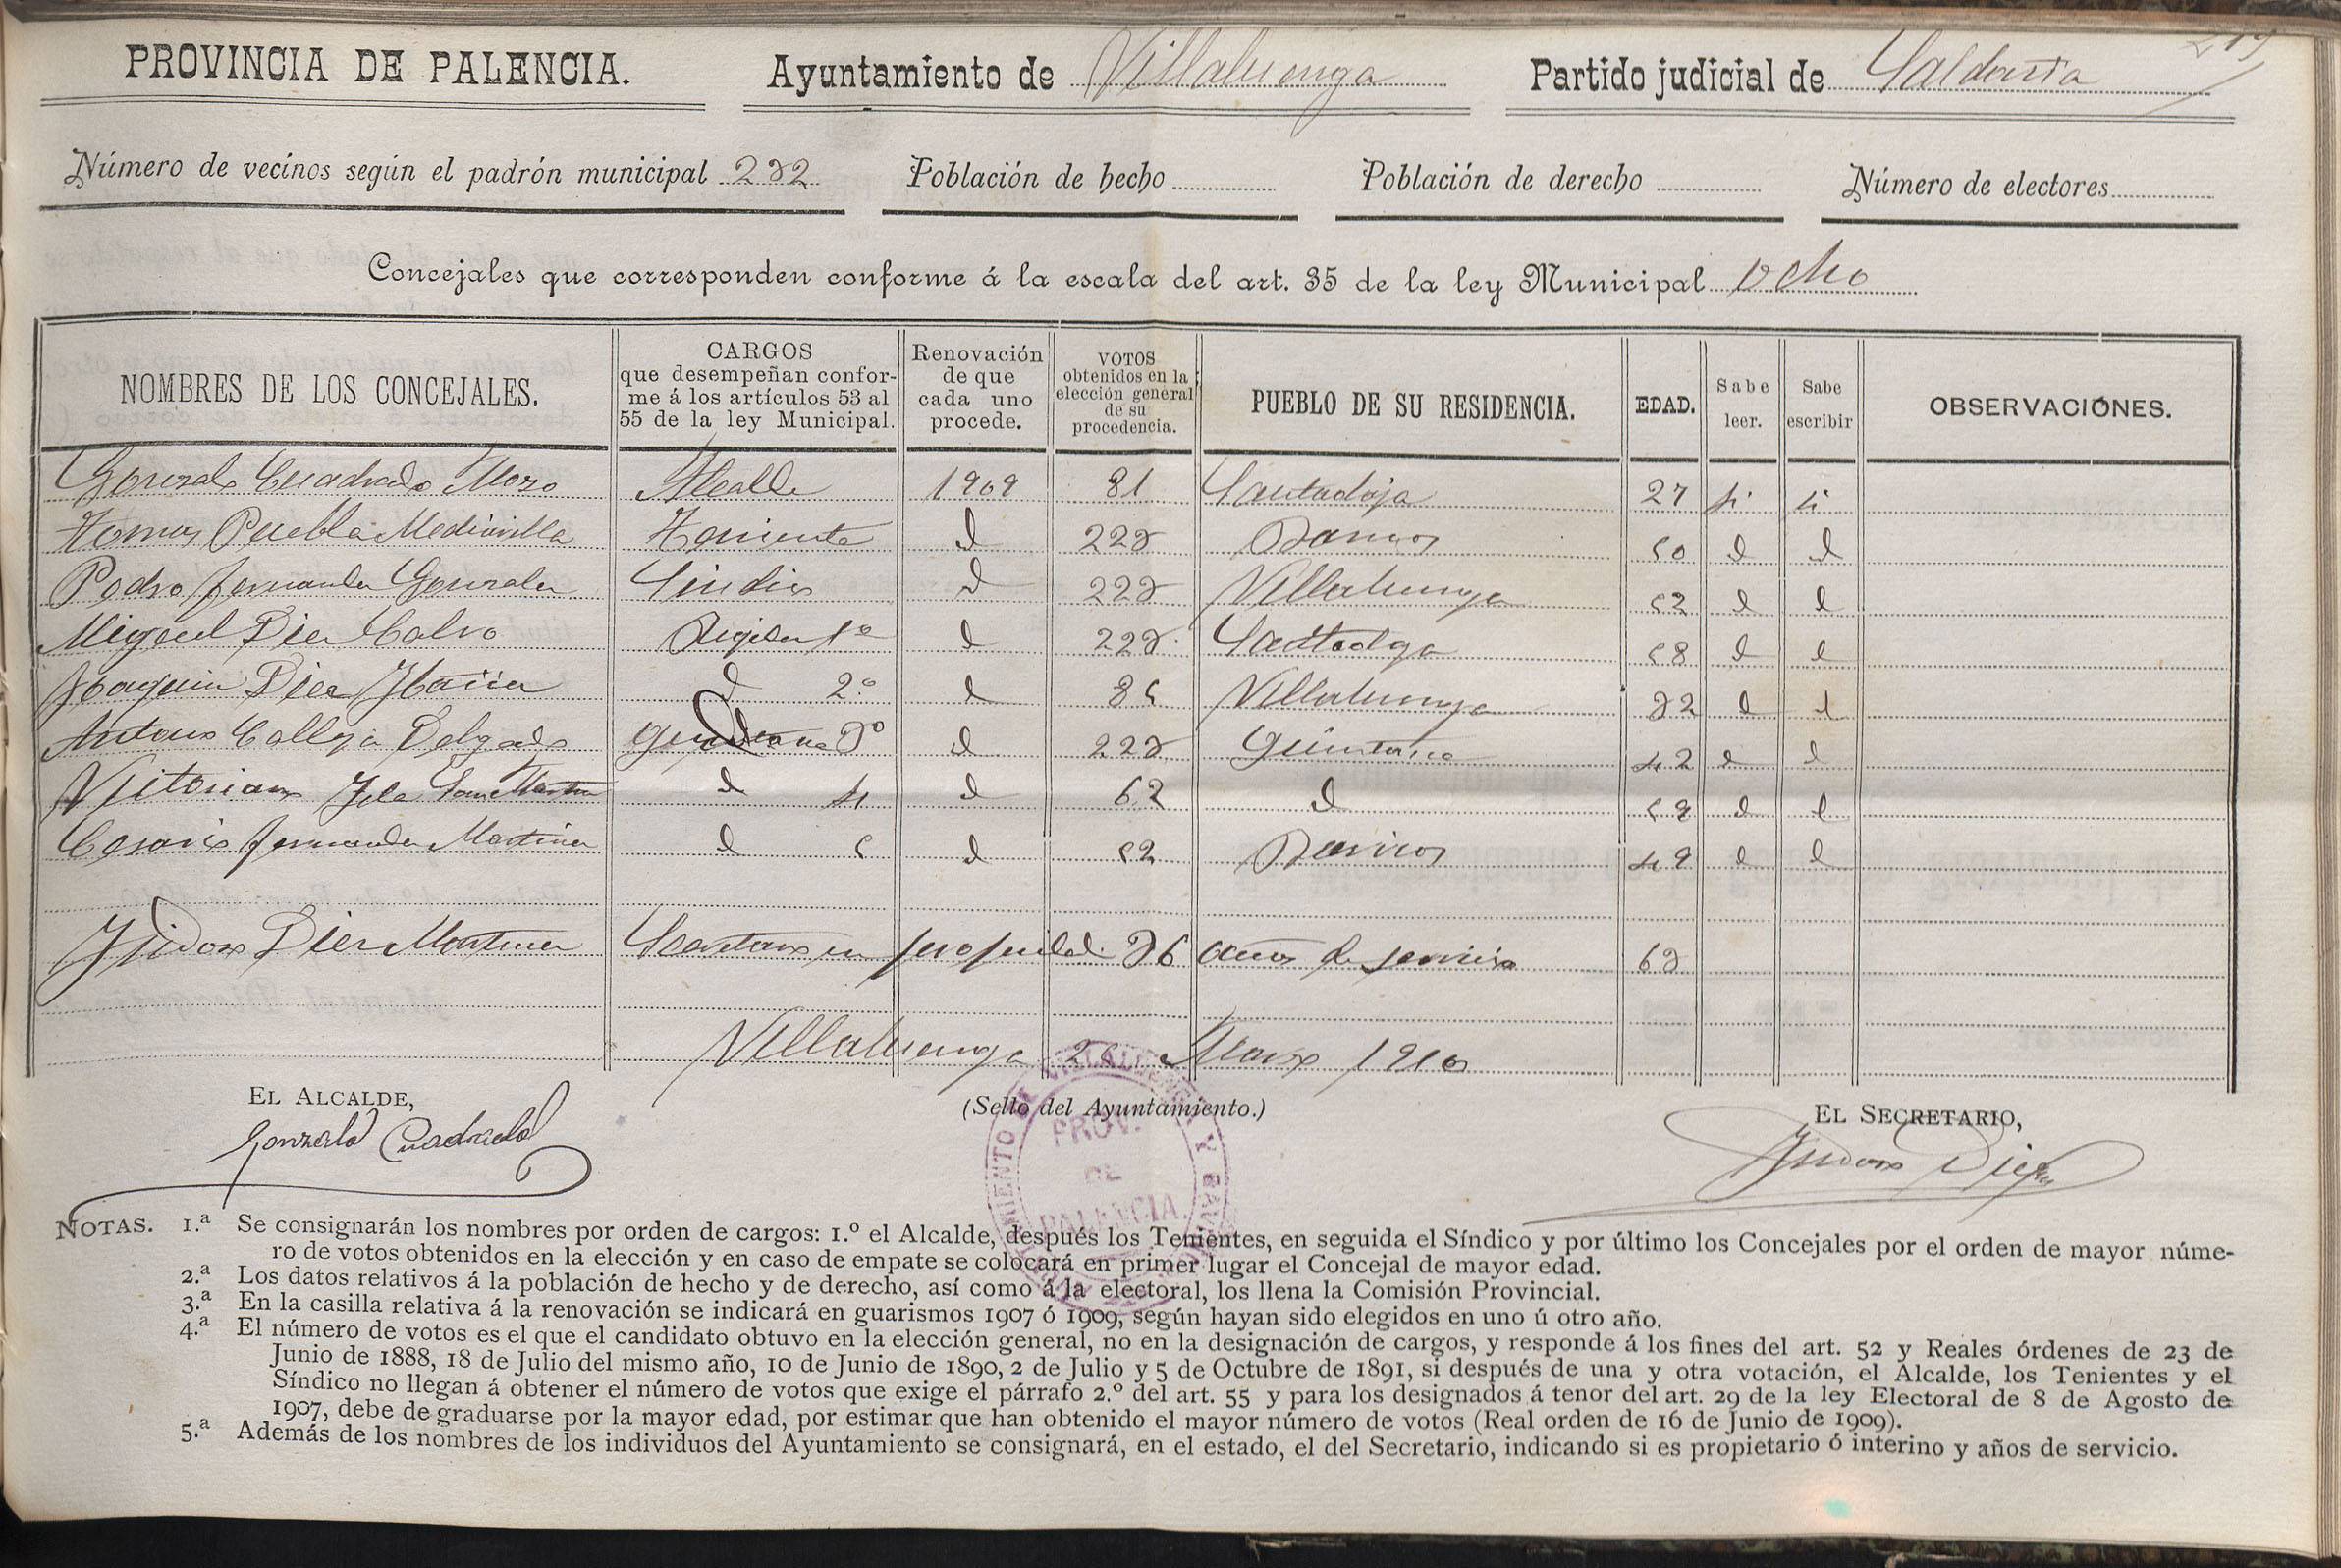 219
PROVINCIA DE PALENCIA. Ayuntamiento de Villaluenga Partido judicial de Saldaña
Número de vecinos según el padrón municipal 232 Población de hecho Población de derecho Número de electores
Concejales que corresponden conforme á la escala del art. 35 de la ley Municipal Ocho
NOMBRES DE LOS CONCEJALES. CARGOS que desempeñan conforme á los artículos 53 al 55 de la ley Municipal. Renovación de que cada uno procede. VOTOS obtenidos en la elección general de su procedencia. PUEBLO DE SU RESIDENCIA. EDAD. Sabe leer. Sabe escribir OBSERVACIONES.
Gonzalo Cuadrado Mozo Alcalde 1909 81 Santadoja 27 si si
Tomas Puebla Mediavilla Teniente id 223 Barrios 50 id id
Pedro fernandez Gonzalez Sindico id 223 Villaluenga 52 id id
Miguel Diez Calvo Regidor 1º id 223 58 id id
Joaquin Diez id 2.º id 85 Villaluenga 32 id id
Antonio Calleja Delgado 3º id 223 Quintana 42 id id
Vitoriano San Martin id 4 id 62 id 59 id id
Cesario fernandez Martinez id 5 id 52 Barrios 49 id id
Isidoro Diez Martinez Secretario en propiedad 36 años de servicio 63
Villaluenga Marzo 1910
EL ALCALDE, (Sello del Ayuntamiento.) EL SECRETARIO,
Gonzalo Cuadrado Isidoro Diez
PROV.
DE
PALENCIA.
NOTAS. 1.ª Se consignarán los nombres por orden de cargos: 1.º el Alcalde, después los Tenientes, en seguida el Síndico y por último los Concejales por el orden de mayor núme-
ro de votos obtenidos en la elección y en caso de empate se colocará en primer lugar el Concejal de mayor edad.
2.ª Los datos relativos á la población de hecho y de derecho, así como á la electoral, los llena la Comisión Provincial.
3.ª En la casilla relativa á la renovación se indicará en guarismos 1907 ó 1909, según hayan sido elegidos en uno ú otro año.
4.ª El número de votos es el que el candidato obtuvo en la elección general, no en la designación de cargos, y responde á los fines del art. 52 y Reales órdenes de 23 de
Junio de 1888, 18 de Julio del mismo año, 10 de Junio de 1890, 2 de Julio y 5 de Octubre de 1891, si después de una y otra votación, el Alcalde, los Tenientes y el
Síndico no llegan á obtener el número de votos que exige el párrafo 2.º del art. 55 y para los designados á tenor del art. 29 de la ley Electoral de 8 de Agosto de
1907, debe de graduarse por la mayor edad, por estimar que han obtenido el mayor número de votos (Real orden de 16 de Junio de 1909).
5.ª Además de los nombres de los individuos del Ayuntamiento se consignará, en el estado, el del Secretario, indicando si es propietario ó interino y años de servicio.